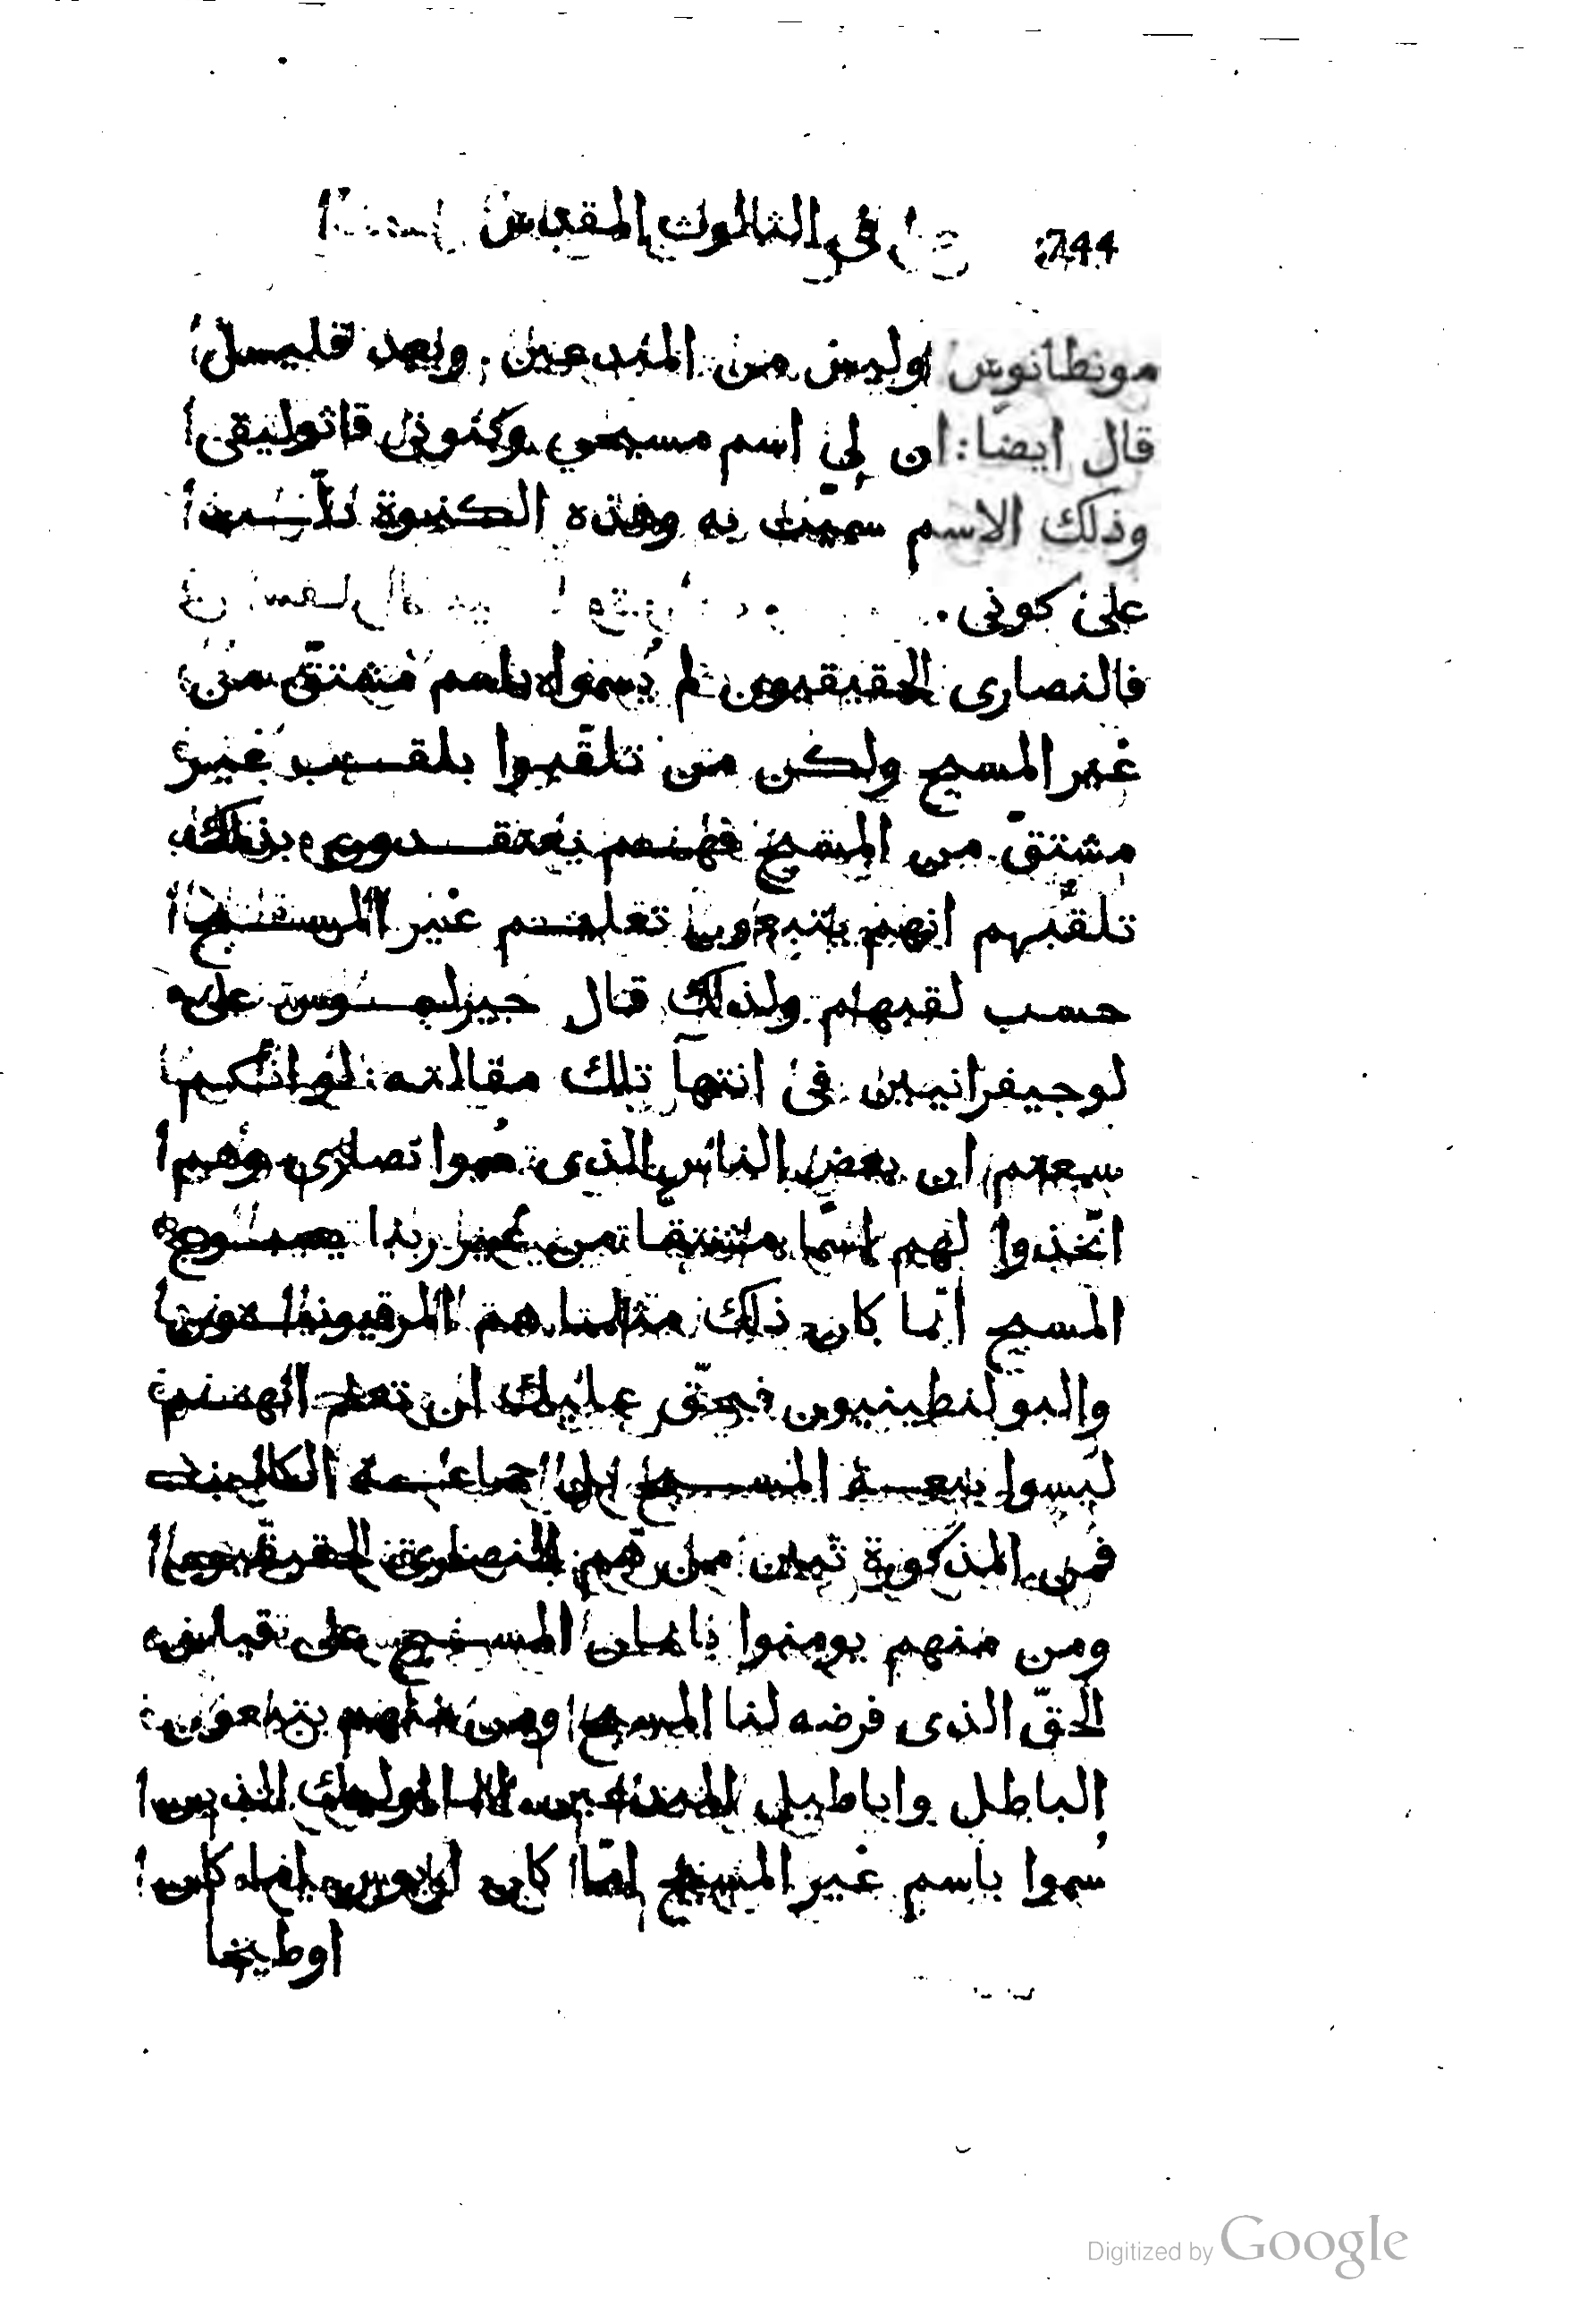 244 في الثالوث المقدس
مونطانوس وليس من المبدعين. وبعد قليل
قال ايضا: ان لي اسم مسيحي وكنوتى قاثوليقى
وذلك الاسم سميّت به وهذه الكنيوة
على كونى.
فالنصارى الحقيقيون لم يُسموا باسم مشتقّ من
غير المسيح ولكن من تلقّبوا بلقب غير
مشتقّ من المسيح فهم يعتقدون بذلك
تلقّبهم انهم يتبعون تعليم غير المسيح
حسب لقبهم ولذلك قال جيرلموس على
لوجيفرانيين فى انتهآ تلك مقالته: لو انكم
سمعتم ان بعض الناس الذى سُموا نصارى وهم
اتّخذوا لهم اسمًا مشتقّا من غير ربنا يسوع
المسيح امّا كان ذلك مثالما هم المرقيونيون
والبولنطينيون فيحقّ عليك ان تعلم انّهم
ليسوا بيعة المسيح بل جماعة
فمن المذكورة تبين من هم النصارى الحقيقيون
ومن منهم يومنوا بايمان المسيح على قياس
الحقّ الذى فرضه لنا المسيح ومن منهم يتبعون
الباطل واباطيل المبدعين الذين
سُموا باسم غير المسيح امّا كان اريوس امّا كان
اوطيخا
Digitized by Google